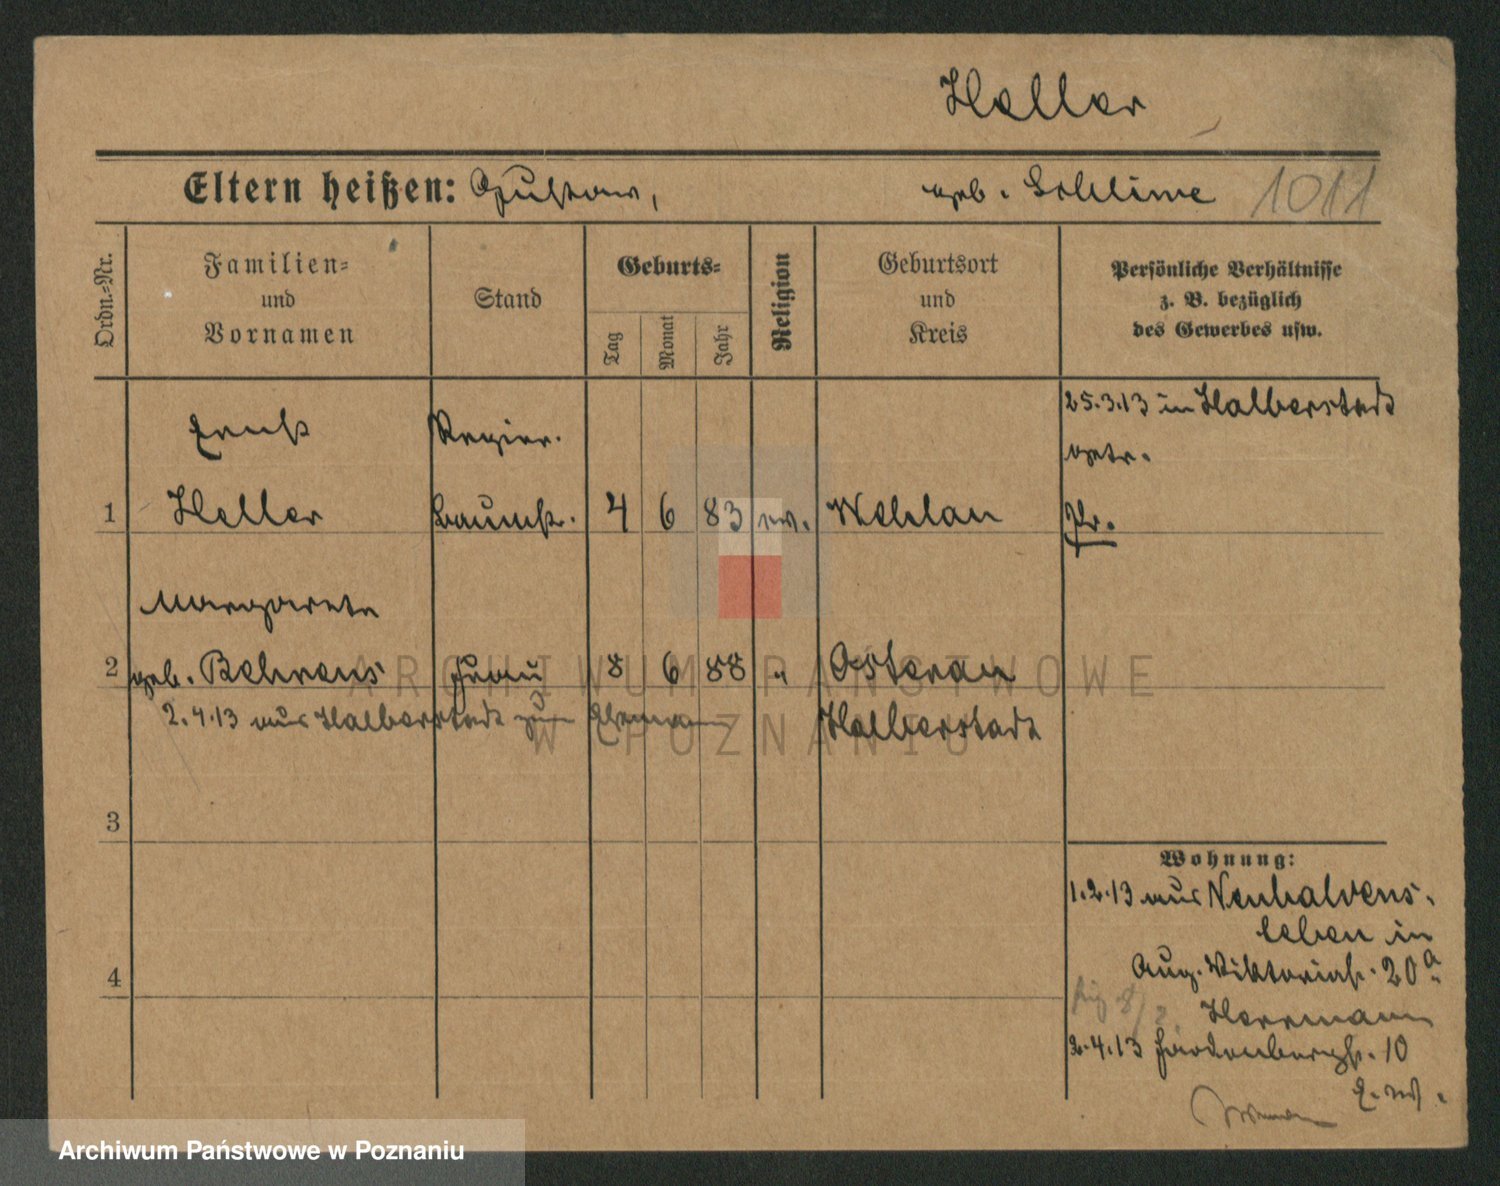 Heller
Eltern heißen: Gustav, geb. Schlime 1011
Ordn.-Nr.
Familien-
und
Vornamen
Stand
Geburts-
Tag
Monat
Jahr
Religion
Geburtsort
und
Kreis
Persönliche Verhältnisse
z. B. bezüglich
des Gewerbes usw.
Ernst Regier. 25.3.13 in Halberstadt
getr.
1 Heller baumstr. 4 6 83 ev. Wehlau Pr.
Margarete
2 geb. Behrens Frau 8 6 88 " Osterau
2.4.13 aus Halberstadt zum Ehemann Halberstadt
3
4
Wohnung:
1.2.13 aus Neuhaldens-
leben in
Aug. Viktoriastr. 20a
Herrmann
2.4.13 Hardenbergstr. 10
E. W.
ARCHIWUM PAŃSTWOWE
W POZNANIU
Archiwum Państwowe w Poznaniu